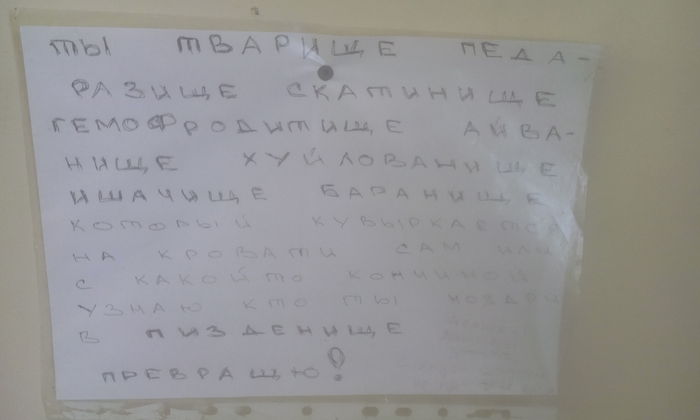 ТЫ ТВАРИЩЕ ПЕДА-
РАЗИЩЕ СКАТИНИЩЕ
ГЕМОФРОДИТИЩЕ АЙВА-
НИЩЕ ХУЙЛОВАНИЩЕ
ИШАЧИЩЕ БАРАНИЩЕ
КОТОРЫЙ КУВЫРКАЕТСЯ
НА КРОВАТИ САМ ИЛИ
С КАКОЙТО КОНЧИНОЙ
УЗНАЮ КТО ТЫ НОЗДРИ
В ПИЗДЕНИЩЕ
ПРЕВРАЩЮ!